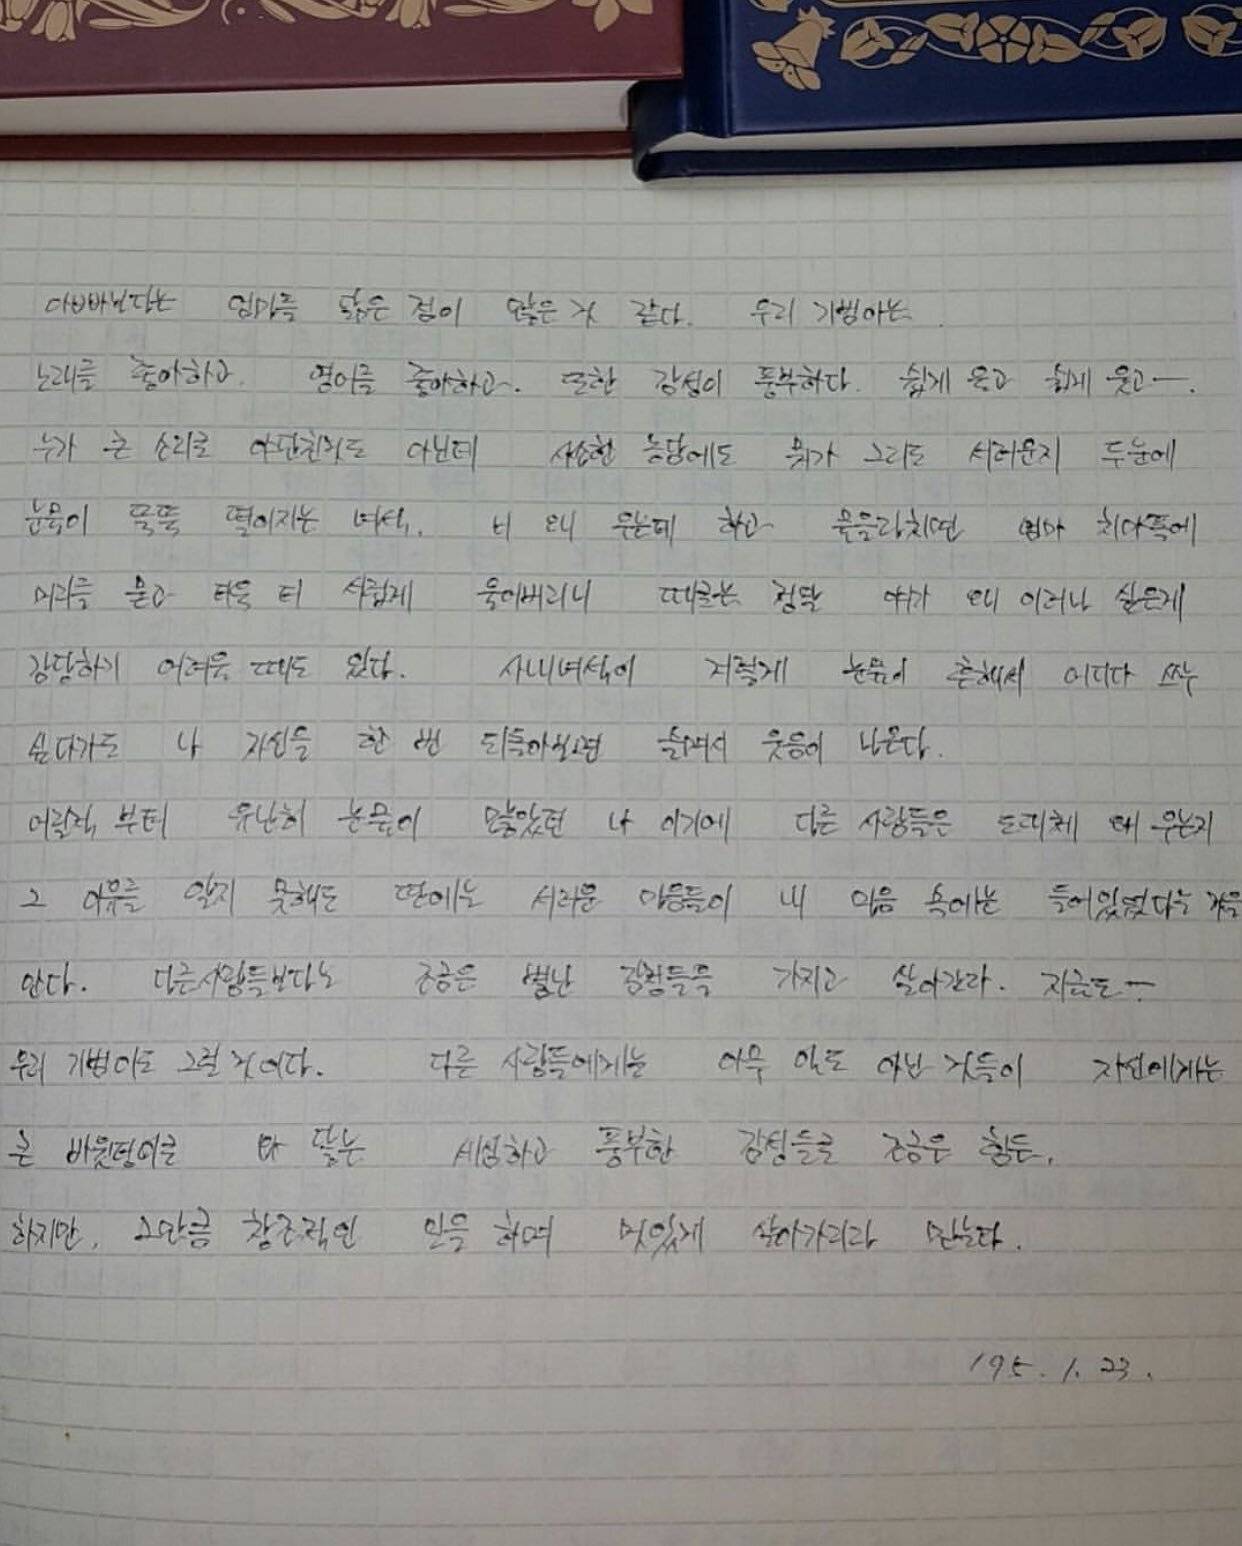 아빠보다는 엄마를 닮은 점이 많은 것 같다. 우리 기범이는
노래를 좋아하고, 영어를 좋아하고. 또한 감성이 풍부하다. 쉽게 울고 쉽게 웃고ㅡ.
누가 큰 소리로 야단친 것도 아닌데 사소한 농담에도 뭐가 그리도 서러운지 두눈에
눈물이 뚝뚝 떨어지는 녀석. 너 왜 우는데 하고 윽을라치면 엄마 치마폭에
머리를 묻고 더욱 더 서럽게 울어버리니 때로는 정말 얘가 왜 이러나 싶은게
감당하기 어려울 때도 있다. 사내녀석이 저렇게 눈물이 흔해서 어디다 쓰누
싶다가도 나 자신을 한 번 되돌아보면 슬며시 웃음이 나온다.
어릴적 부터 유난히 눈물이 많았던 나 이기에 다른 사람들은 도대체 왜 우는지
그 이유를 알지 못해도 딴에는 서러운 마음들이 내 마음 속에는 들어있었다는 것을
안다. 다른사람들보다는 조금은 별난 감정들을 가지고 살아간다. 지금도ㅡ
우리 기범이도 그럴 것이다. 다른 사람들에게는 아무 일도 아닌 것들이 자신에게는
큰 바윗덩이로 와 닿는 세심하고 풍부한 감성들로 조금은 힘든,
하지만, 그만큼 창조적인 일을 하며 멋있게 살아가리라 믿는다.
195. 1. 23.